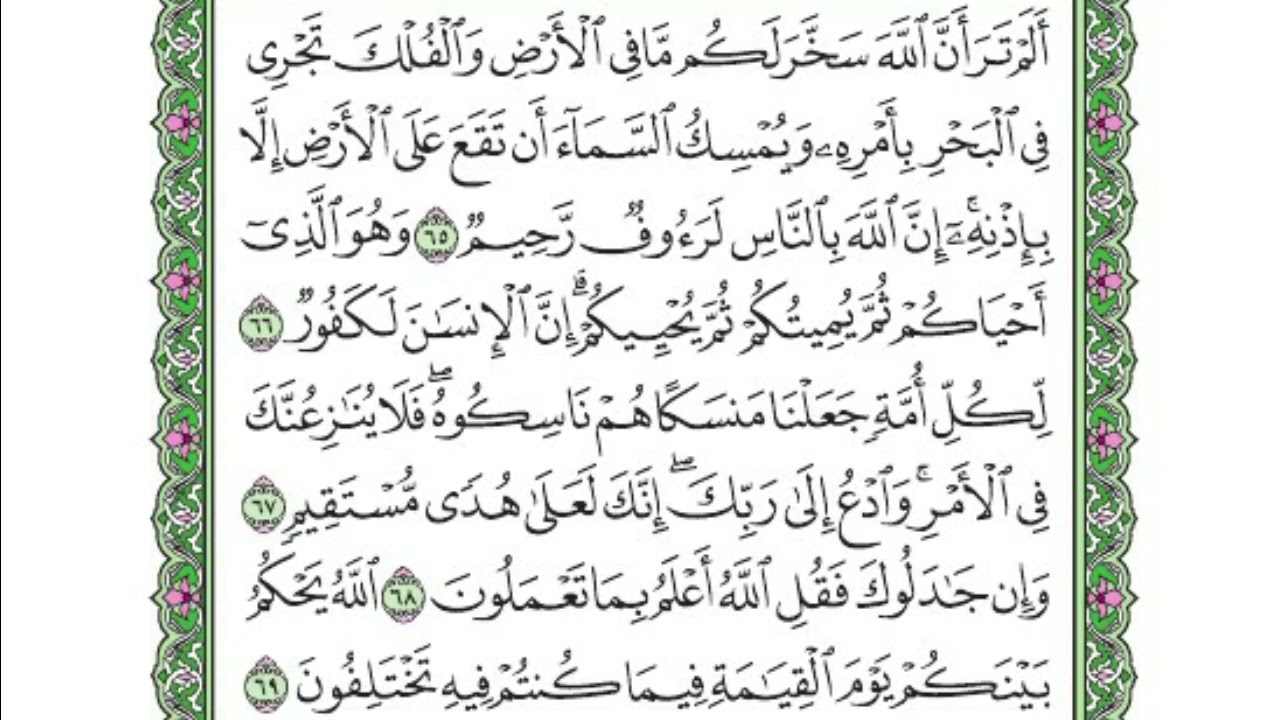 أَلَمْ تَرَ أَنَّ ٱللَّهَ سَخَّرَ لَكُم مَّا فِى ٱلْأَرْضِ وَٱلْفُلْكَ تَجْرِى
فِى ٱلْبَحْرِ بِأَمْرِهِۦ وَيُمْسِكُ ٱلسَّمَآءَ أَن تَقَعَ عَلَى ٱلْأَرْضِ إِلَّا
بِإِذْنِهِۦٓ ۚ إِنَّ ٱللَّهَ بِٱلنَّاسِ لَرَءُوفٌ رَّحِيمٌ ٦٥ وَهُوَ ٱلَّذِىٓ
أَحْيَاكُمْ ثُمَّ يُمِيتُكُمْ ثُمَّ يُحْيِيكُمْ ۗ إِنَّ ٱلْإِنسَٰنَ لَكَفُورٌ ٦٦
لِّكُلِّ أُمَّةٍ جَعَلْنَا مَنسَكًا هُمْ نَاسِكُوهُ ۖ فَلَا يُنَٰزِعُنَّكَ
فِى ٱلْأَمْرِ ۚ وَٱدْعُ إِلَىٰ رَبِّكَ ۖ إِنَّكَ لَعَلَىٰ هُدًى مُّسْتَقِيمٍ ٦٧
وَإِن جَٰدَلُوكَ فَقُلِ ٱللَّهُ أَعْلَمُ بِمَا تَعْمَلُونَ ٦٨ ٱللَّهُ يَحْكُمُ
بَيْنَكُمْ يَوْمَ ٱلْقِيَٰمَةِ فِيمَا كُنتُمْ فِيهِ تَخْتَلِفُونَ ٦٩